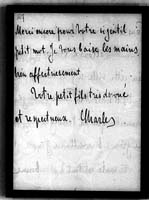 Merci encore pour votre si gentil
petit mot. Je vous baise les mains
bien affectueusement.
Votre petit fils très dévoué
et respectueux. Charles